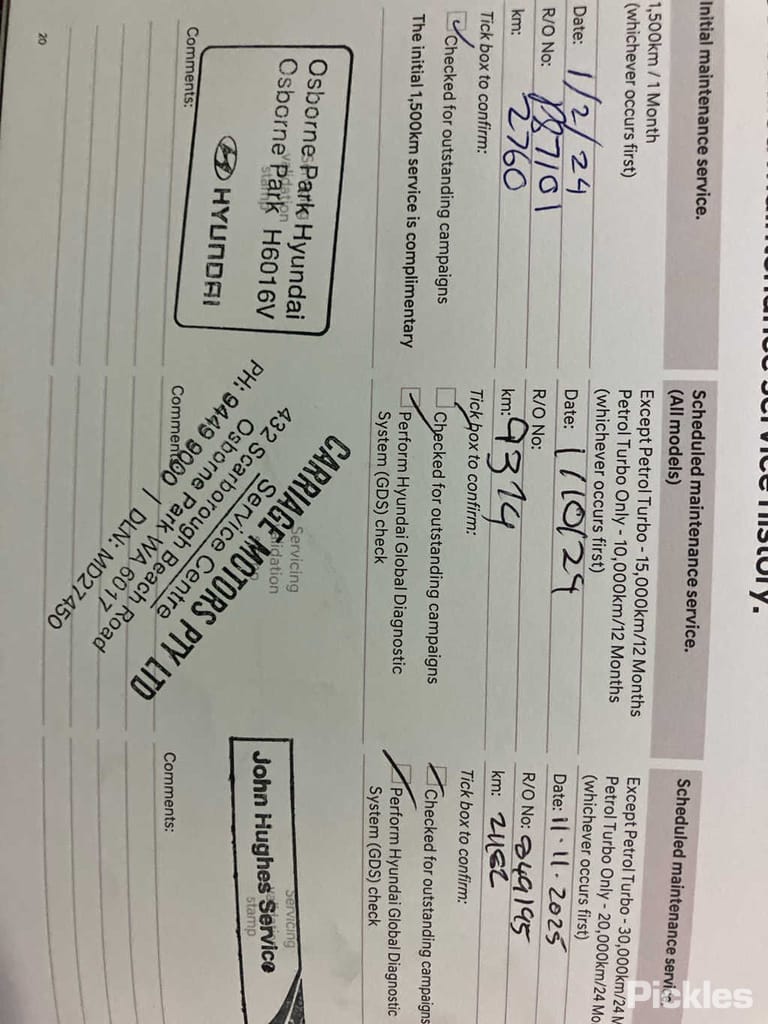 Maintenance service history.
Initial maintenance service.
1,500km / 1 Month
(whichever occurs first)
Date: 1/2/24
R/O No: 887101
km: 2760
Tick box to confirm:
Checked for outstanding campaigns
The initial 1,500km service is complimentary
Osborne Park Hyundai
Osborne Park H6016V
HYUNDAI
Comments:
20
Scheduled maintenance service.
(All models)
Except Petrol Turbo - 15,000km/12 Months
Petrol Turbo Only - 10,000km/12 Months
(whichever occurs first)
Date: 1/10/24
R/O No:
km: 9374
Tick box to confirm:
Checked for outstanding campaigns
Perform Hyundai Global Diagnostic
System (GDS) check
Servicing
validation
CARRIAGE MOTORS PTY LTD
Service Centre
432 Scarborough Beach Road
Osborne Park WA 6017
PH: 9449 9000 / DLN: MD27450
Comments:
Scheduled maintenance service.
Except Petrol Turbo - 30,000km/24 M
Petrol Turbo Only - 20,000km/24 Mo
(whichever occurs first)
Date: 11.11.2025
R/O No: 849195
km: 21182
Tick box to confirm:
Checked for outstanding campaigns
Perform Hyundai Global Diagnostic
System (GDS) check
Servicing
stamp
John Hughes Service
Comments:
Pickles